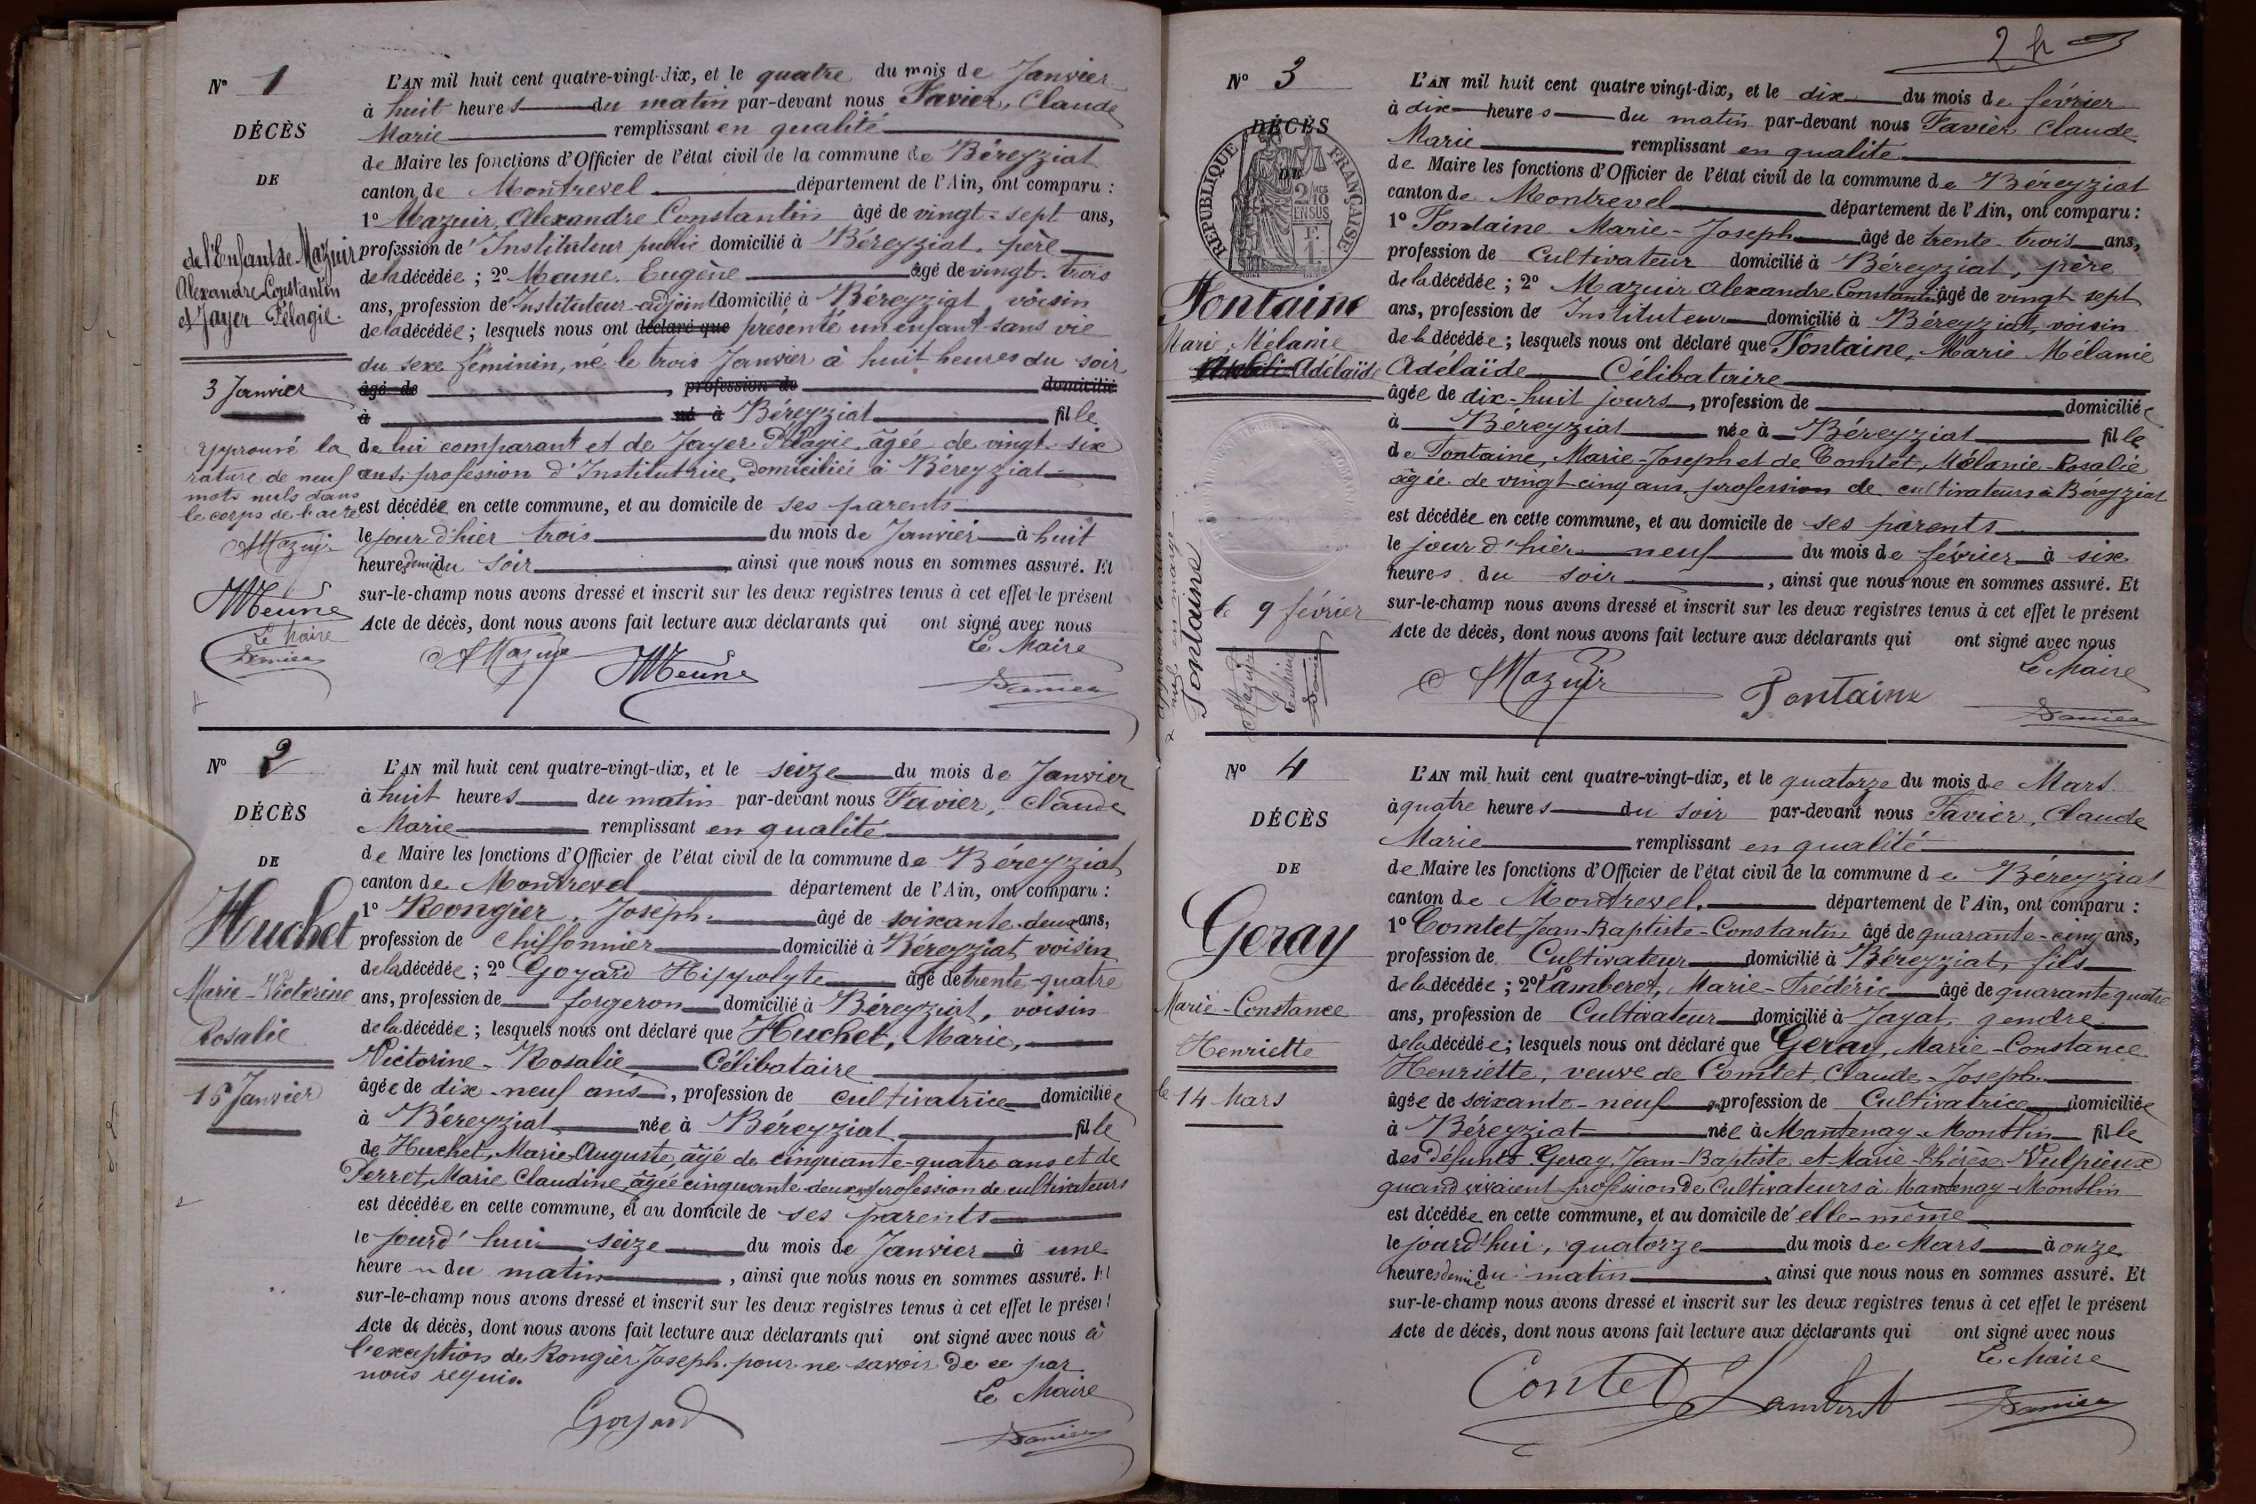 Nº 1
DÉCÈS
DE
de l'Enfant de Mazuir
Alexandre-Constantin
et Jayer Pélagie.
3 Janvier
Approuvé la
rature de neuf
mots nuls dans
le corps de l'acte
AMazuir
Meune
Le Maire
Favier
L'AN mil huit cent quatre-vingt-dix, et le quatre du mois de Janvier
à huit heures du matin par-devant nous Favier, Claude
Marie remplissant en qualité
de Maire les fonctions d'Officier de l'état civil de la commune de Béreyziat
canton de Montrevel département de l'Ain, ont comparu :
1º Mazuir, Alexandre Constantin âgé de vingt-sept ans,
profession de Instituteur public domicilié à Béreyziat, père
de la décédée ; 2º Meune Eugène âgé de vingt-trois
ans, profession de Instituteur-adjoint domicilié à Béreyziat, voisin
de la décédée ; lesquels nous ont déclaré que présenté un enfant sans vie
du sexe féminin, né le trois Janvier à huit heures du soir
âgé de , profession de domicilié
à né à Béreyziat fille
de lui comparant et de Jayer Pélagie âgée de vingt-six
ans, profession d'Institutrice, domiciliée à Béreyziat
est décédée en cette commune, et au domicile de ses parents
le jour d'hier trois du mois de Janvier à huit
heures demie du soir , ainsi que nous nous en sommes assuré. Et
sur-le-champ nous avons dressé et inscrit sur les deux registres tenus à cet effet le présent
Acte de décès, dont nous avons fait lecture aux déclarants qui ont signé avec nous
Le Maire
AMazuir Meune Favier
Nº 2
DÉCÈS
DE
Huchet
Marie-Victorine
Rosalie
16 Janvier
L'AN mil huit cent quatre-vingt-dix, et le seize du mois de Janvier
à huit heures du matin par-devant nous Favier, Claude
Marie remplissant en qualité
de Maire les fonctions d'Officier de l'état civil de la commune de Béreyziat
canton de Montrevel département de l'Ain, ont comparu :
1º Rongier, Joseph. âgé de soixante-deux ans,
profession de chiffonnier domicilié à Béreyziat, voisin
de la décédée ; 2º Goyard Hippolyte âgé de trente-quatre
ans, profession de forgeron domicilié à Béreyziat, voisin
de la décédée ; lesquels nous ont déclaré que Huchet, Marie,
Victorine-Rosalie, Célibataire
âgée de dix-neuf ans, profession de cultivatrice domiciliée
à Béreyziat née à Béreyziat fille
de Huchet, Marie-Auguste, âgé de cinquante-quatre ans et de
Perret, Marie Claudine, âgée cinquante-deux ans, profession de cultivateurs
est décédée en cette commune, et au domicile de ses parents
le jourd'hui seize du mois de Janvier à une
heure du matin , ainsi que nous nous en sommes assuré. Et
sur-le-champ nous avons dressé et inscrit sur les deux registres tenus à cet effet le présent
Acte de décès, dont nous avons fait lecture aux déclarants qui ont signé avec nous à
l'exception de Rongier Joseph. pour ne savoir de ce par
nous requis.
Le Maire
Goyard Favier
Nº 3
DÉCÈS
DE
RÉPUBLIQUE FRANÇAISE
2/10 EN SUS
Fontaine
Marie Mélanie
Adélaïde
le 9 février
Approuvé la rature d'un mot
nul en marge
Fontaine
AMazuir
Le Maire
Favier
L'AN mil huit cent quatre vingt-dix, et le dix du mois de février
à dix heures du matin par-devant nous Favier Claude
Marie remplissant en qualité
de Maire les fonctions d'Officier de l'état civil de la commune de Béreyziat
canton de Montrevel département de l'Ain, ont comparu :
1º Fontaine Marie-Joseph âgé de trente-trois ans,
profession de Cultivateur domicilié à Béreyziat, père
de la décédée ; 2º Mazuir Alexandre Constantin âgé de vingt-sept
ans, profession de Instituteur domicilié à Béreyziat, voisin
de la décédée ; lesquels nous ont déclaré que Fontaine, Marie Mélanie
Adélaïde Célibataire
âgée de dix-huit jours, profession de domiciliée
à Béreyziat née à Béreyziat fille
de Fontaine, Marie-Joseph et de Comtet, Mélanie-Rosalie
âgée de vingt-cinq ans, profession de cultivateurs à Béreyziat
est décédée en cette commune, et au domicile de ses parents
le jour d'hier neuf du mois de février à six
heures du soir , ainsi que nous nous en sommes assuré. Et
sur-le-champ nous avons dressé et inscrit sur les deux registres tenus à cet effet le présent
Acte de décès, dont nous avons fait lecture aux déclarants qui ont signé avec nous
Le Maire
AMazuir Fontaine Favier
Nº 4
DÉCÈS
DE
Geray
Marie-Constance
Henriette
le 14 Mars
L'AN mil huit cent quatre-vingt-dix, et le quatorze du mois de Mars
à quatre heures du soir par-devant nous Favier, Claude
Marie remplissant en qualité
de Maire les fonctions d'Officier de l'état civil de la commune de Béreyziat
canton de Montrevel. département de l'Ain, ont comparu :
1º Comtet Jean-Baptiste-Constantin âgé de quarante-cinq ans,
profession de Cultivateur domicilié à Béreyziat, fils
de la décédée ; 2º Lamberet, Marie-Frédéric âgé de quarante quatre
ans, profession de Cultivateur domicilié à Jayat, gendre
de la décédée ; lesquels nous ont déclaré que Geray, Marie-Constance
Henriette, veuve de Comtet, Claude-Joseph.
âgée de soixante-neuf ans, profession de Cultivatrice domiciliée
à Béreyziat née à Mantenay-Montlin fille
des défunts Geray, Jean-Baptiste et Marie-Thérèse Vulpieux
quand vivaient profession de Cultivateurs à Mantenay-Montlin
est décédée en cette commune, et au domicile de elle-même
le jourd'hui, quatorze du mois de Mars à onze
heures demie du matin , ainsi que nous nous en sommes assuré. Et
sur-le-champ nous avons dressé et inscrit sur les deux registres tenus à cet effet le présent
Acte de décès, dont nous avons fait lecture aux déclarants qui ont signé avec nous
Le Maire
Contet Lamberet Favier